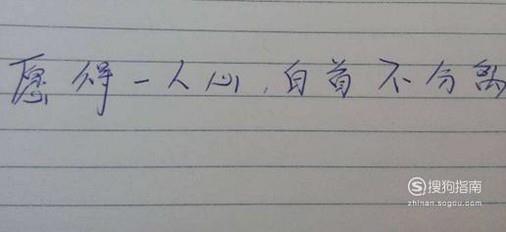 愿得一人心,白首不分离
搜狗指南
zhinan.sogou.com